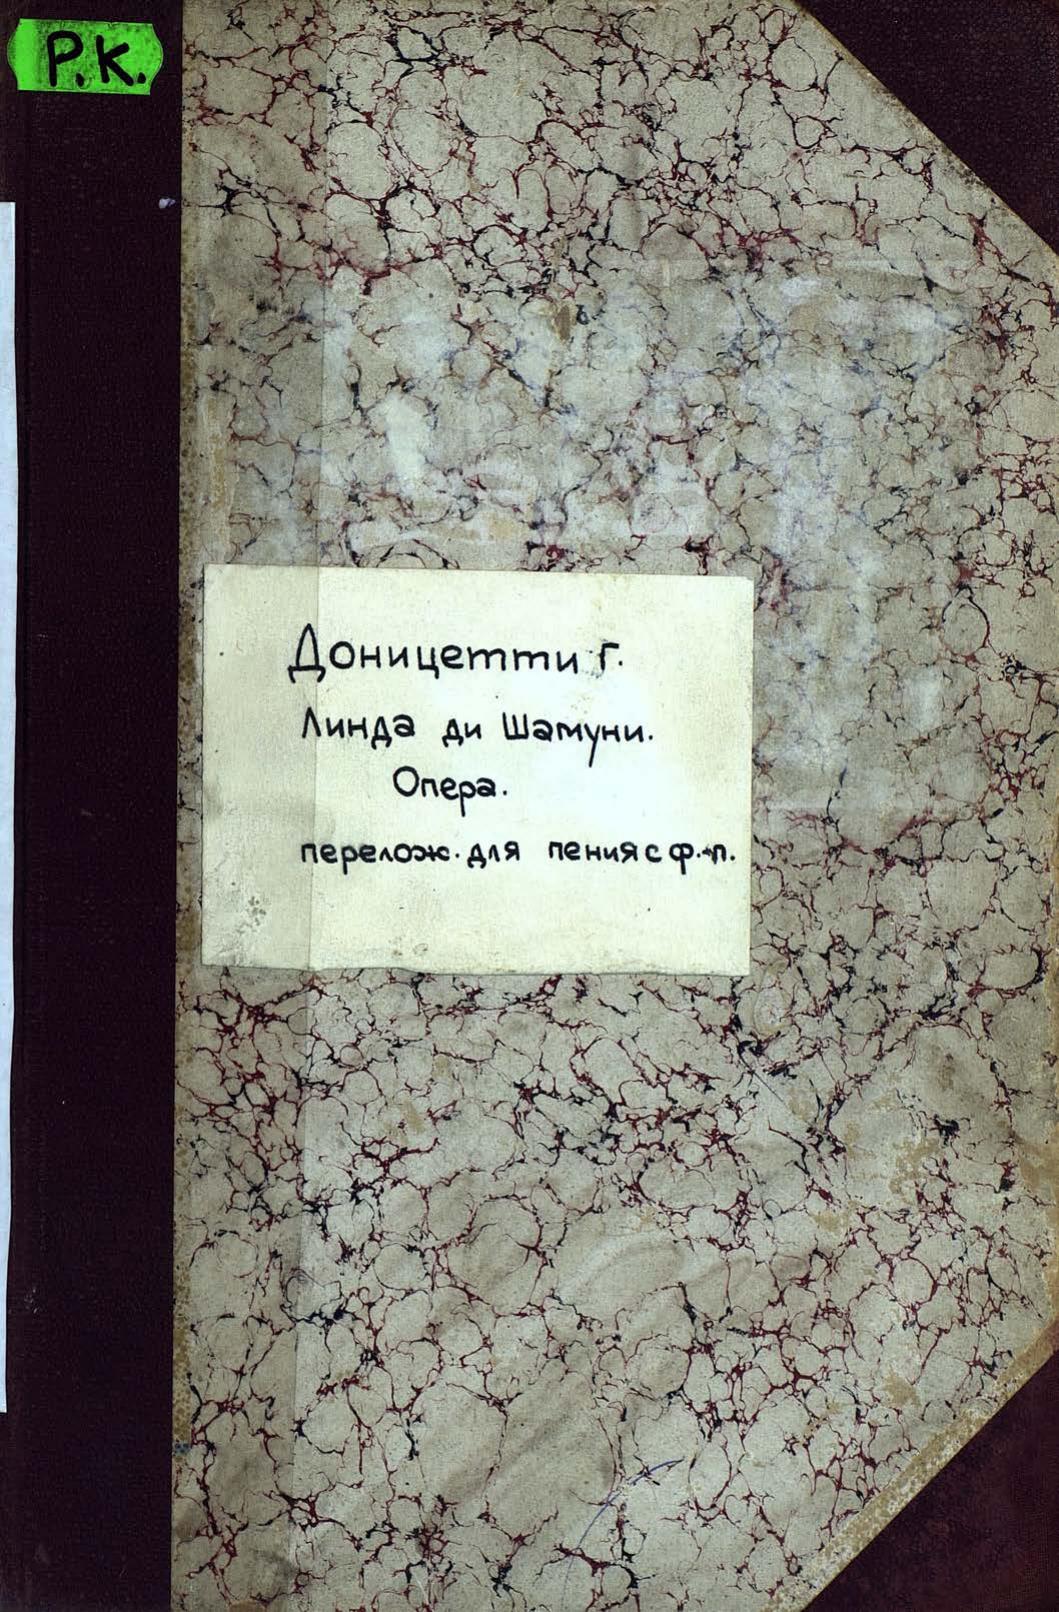 Р.К.
Доницетти Г.
Линда ди Шамуни.
Опера.
перелож. для пения с ф.-п.